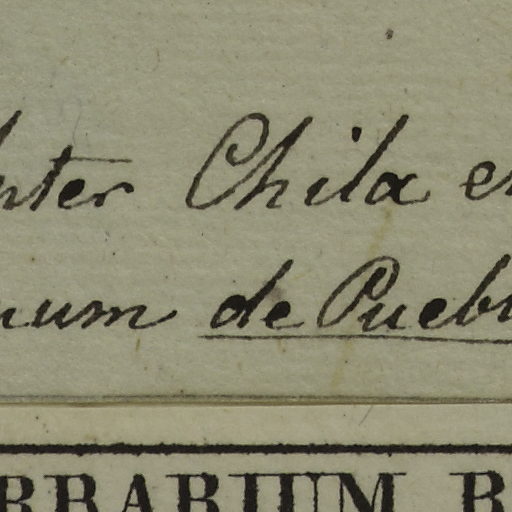 nter Chila e
num de Puebl
ERBARIUM B